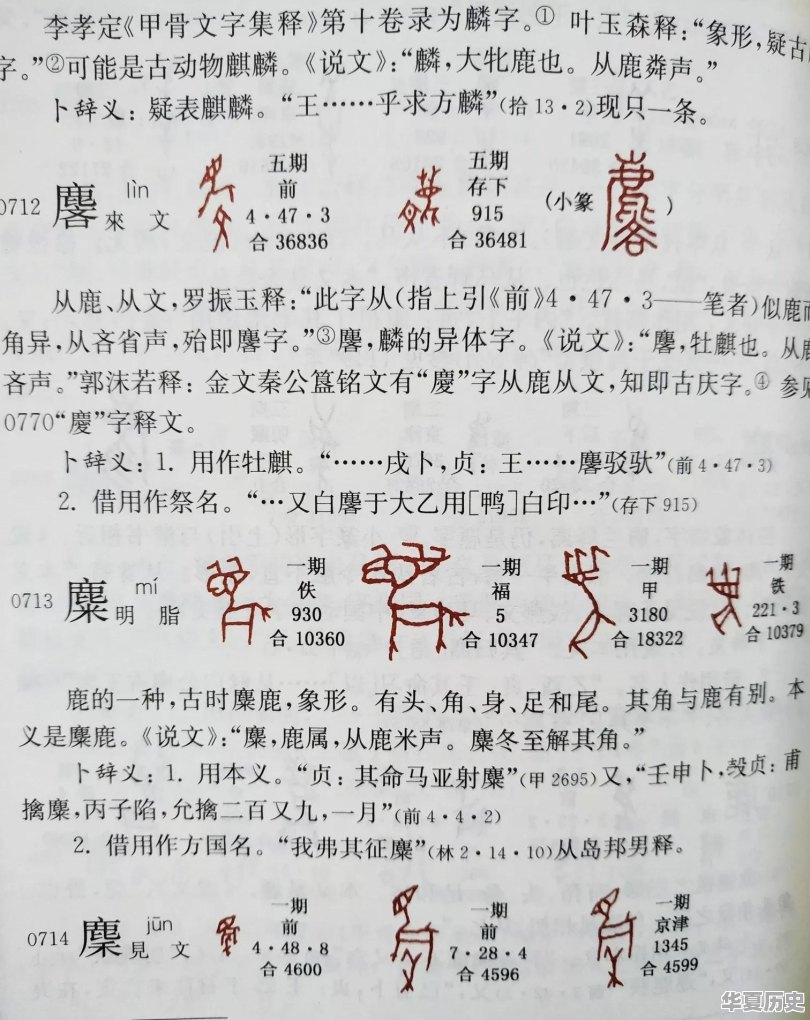 李孝定《甲骨文字集释》第十卷录为麟字。① 叶玉森释：“象形，疑古
字。”②可能是古动物麒麟。《说文》：“麟，大牝鹿也。从鹿粦声。”
卜辞义：疑表麒麟。“王……乎求方麟”(拾 13·2)现只一条。
0712 麐 lìn 來 文 五期 前 4·47·3 合 36836 五期 存下 915 合 36481 (小篆 )
从鹿、从文，罗振玉释：“此字从(指上引《前》4·47·3——笔者)似鹿而
角异，从吝省声，殆即麐字。”③麐，麟的异体字。《说文》：“麐，牡麒也。从鹿
吝声。”郭沫若释：金文秦公簋铭文有“慶”字从鹿从文，知即古庆字。④ 参见
0770“慶”字释文。
卜辞义：1. 用作牡麒。“……戌卜，贞：王……麐驳馱”(前 4·47·3)
2. 借用作祭名。“…又白麐于大乙用[鸭]白印…”(存下 915)
0713 麋 mí 明 脂 一期 佚 930 合 10360 一期 福 5 合 10347 一期 甲 3180 合 18322 一期 铁 221·3 合 10379
鹿的一种，古时麋鹿，象形。有头、角、身、足和尾。其角与鹿有别。本
义是麋鹿。《说文》：“麋，鹿属，从鹿米声。麋冬至解其角。”
卜辞义：1. 用本义。“贞：其命马亚射麋”(甲 2695)又，“壬申卜，殻贞：甫
擒麋，丙子陷，允擒二百又九，一月”(前 4·4·2)
2. 借用作方国名。“我弗其征麋”(林 2·14·10)从岛邦男释。
0714 麇 jūn 見 文 一期 前 4·48·8 合 4600 一期 前 7·28·4 合 4596 一期 京津 1345 合 4599
华夏历史